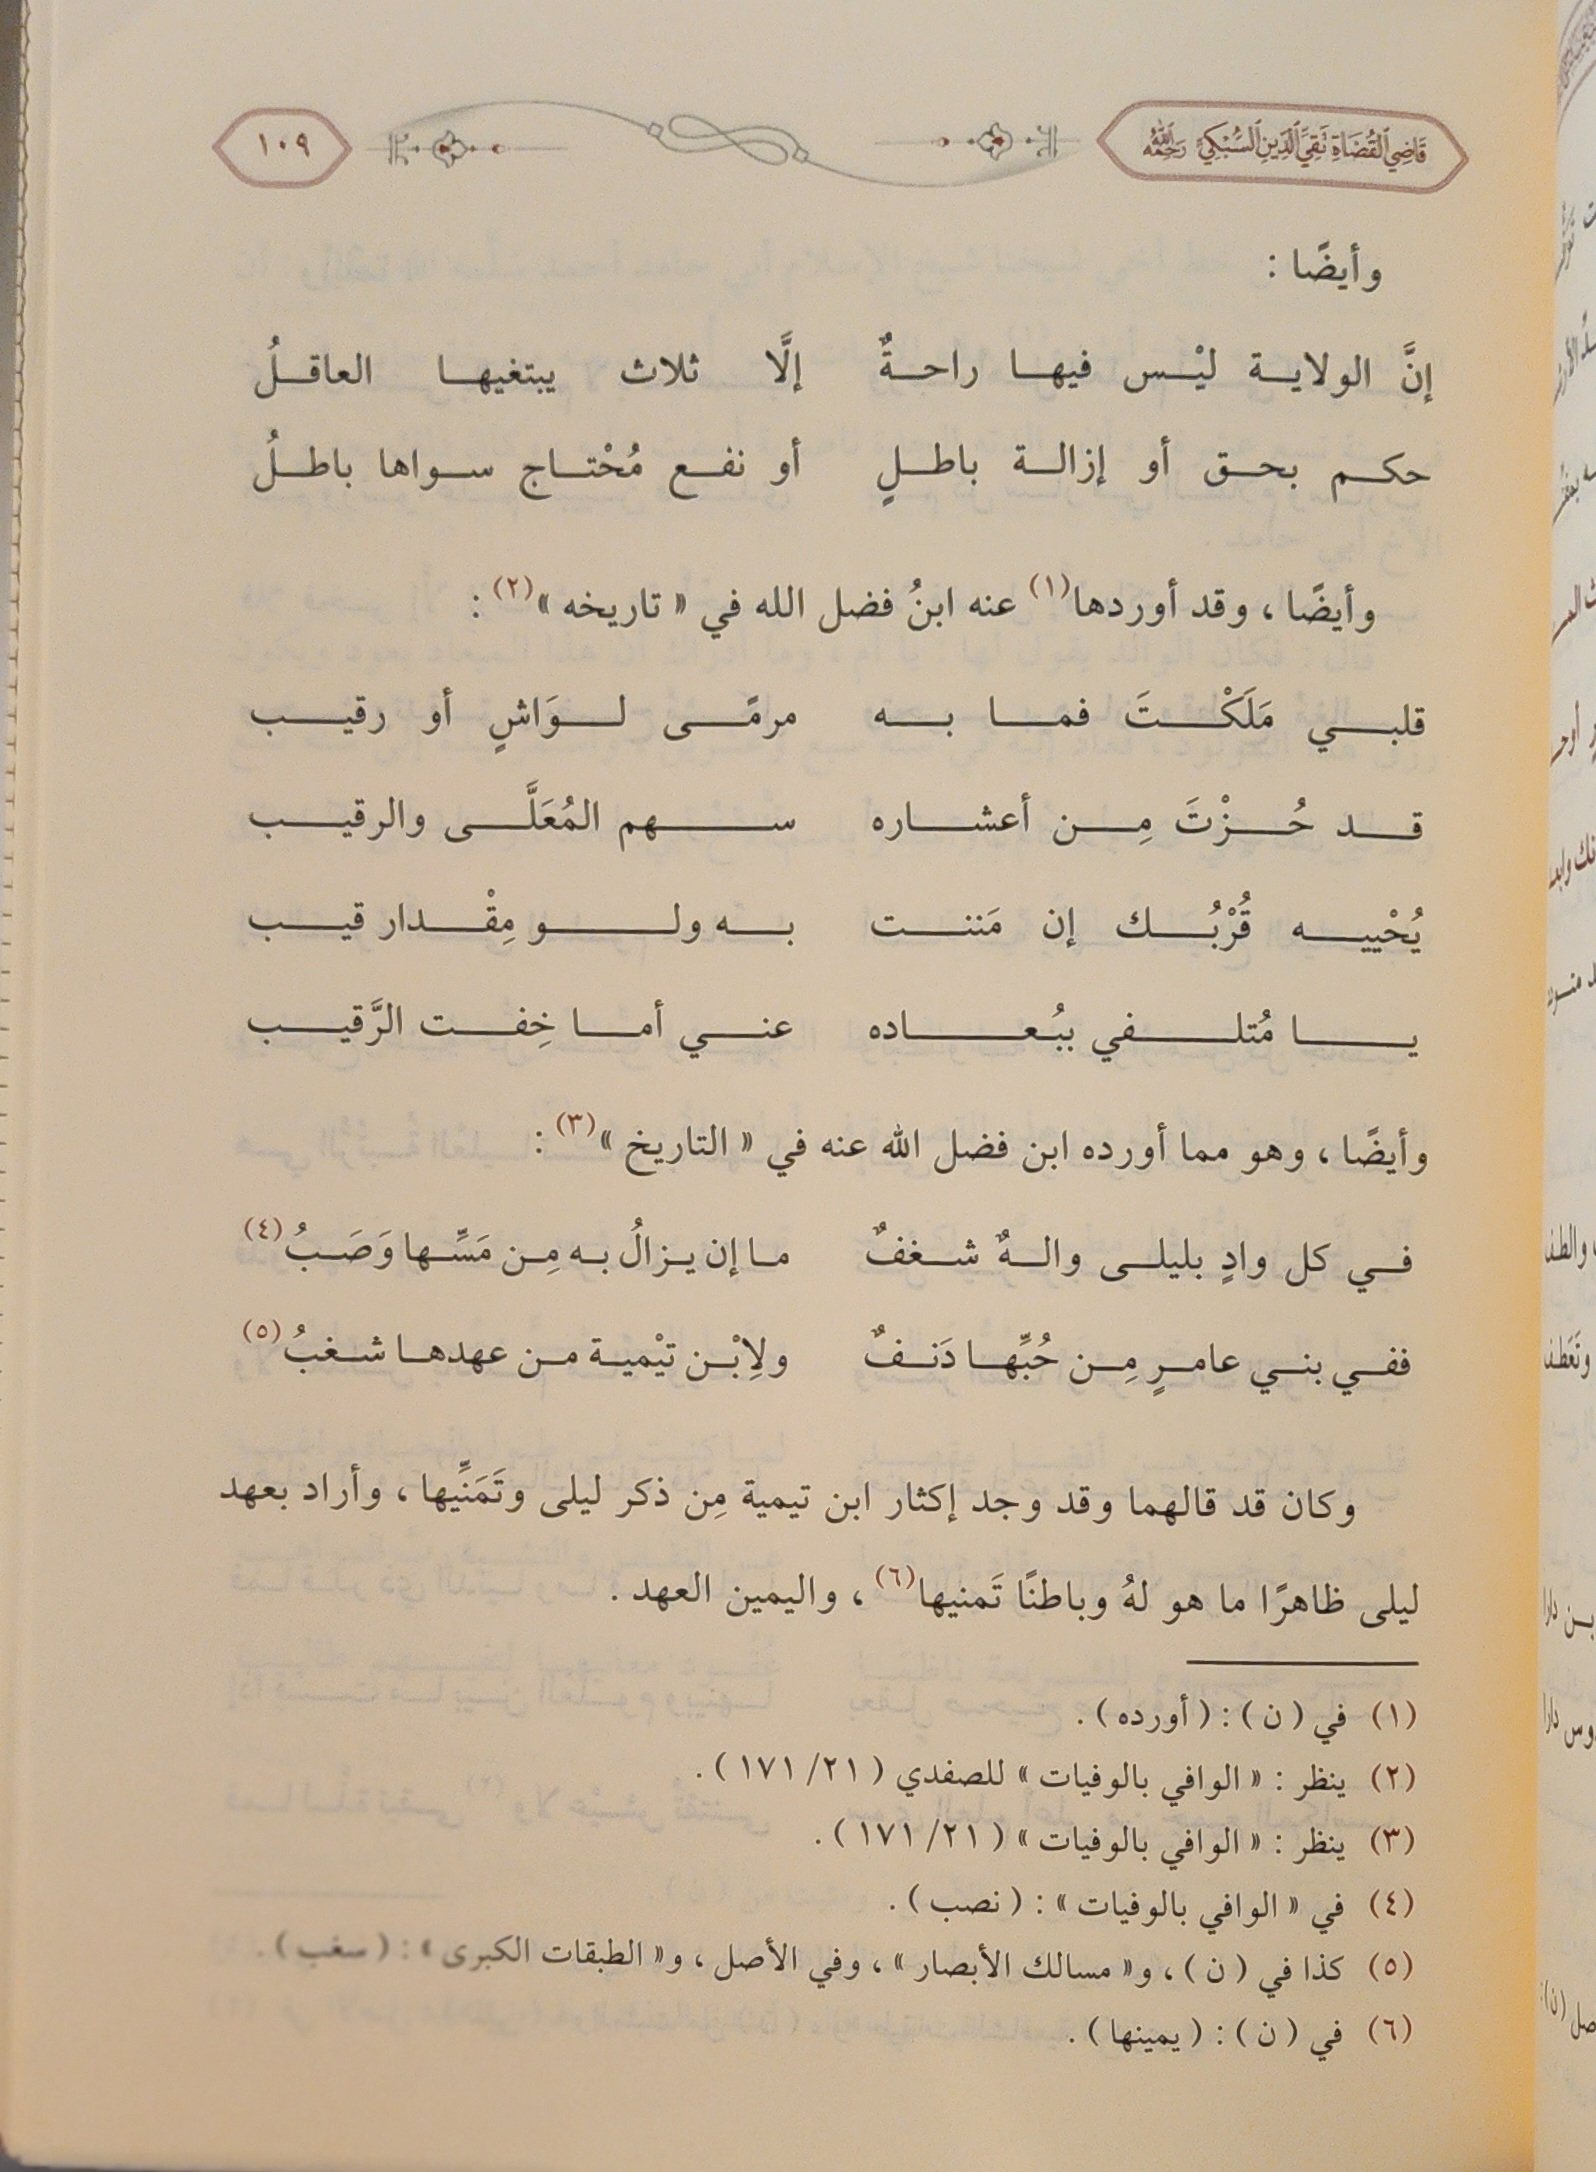 قَاضِي ٱلْقُضَاةِ تَقِيّ ٱلدِّينِ ٱلسُّبْكِيّ رَحِمَهُ ٱللَّهُ
١٠٩
وأيضًا :
إنَّ الولاية ليْس فيها راحةٌ إلَّا ثلاث يبتغيها العاقلُ
حكم بحق أو إزالة باطلٍ أو نفع مُحْتاج سواها باطلُ
وأيضًا ، وقد أوردها(١) عنه ابنُ فضل الله في « تاريخه »(٢) :
قلبي مَلَكْتَ فما به مرمًى لوَاشٍ أو رقيب
قد حُزْتَ مِن أعشاره سهم المُعَلَّى والرقيب
يُحْييه قُرْبُك إن مَننت به ولو مِقْدار قيب
يا مُتلفي ببُعاده عني أما خِفت الرَّقيب
وأيضًا ، وهو مما أورده ابن فضل الله عنه في « التاريخ »(٣) :
في كل وادٍ بليلى والهٌ شغفٌ ما إن يزالُ به مِن مَسِّها وَصَبُ(٤)
ففي بني عامرٍ مِن حُبِّها دَنفٌ ولِابْن تيْمية من عهدها شغبُ(٥)
وكان قد قالهما وقد وجد إكثار ابن تيمية مِن ذكر ليلى وتَمَنِّيها ، وأراد بعهد
ليلى ظاهرًا ما هو لهُ وباطنًا تَمنيها(٦) ، واليمين العهد .
(١) في ( ن ) : ( أورده ) .
(٢) ينظر : « الوافي بالوفيات » للصفدي ( ٢١/ ١٧١ ) .
(٣) ينظر : « الوافي بالوفيات » ( ٢١/ ١٧١ ) .
(٤) في « الوافي بالوفيات » : ( نصب ) .
(٥) كذا في ( ن ) ، و« مسالك الأبصار » ، وفي الأصل ، و« الطبقات الكبرى » : ( سغب ) .
(٦) في ( ن ) : ( يمينها ) .